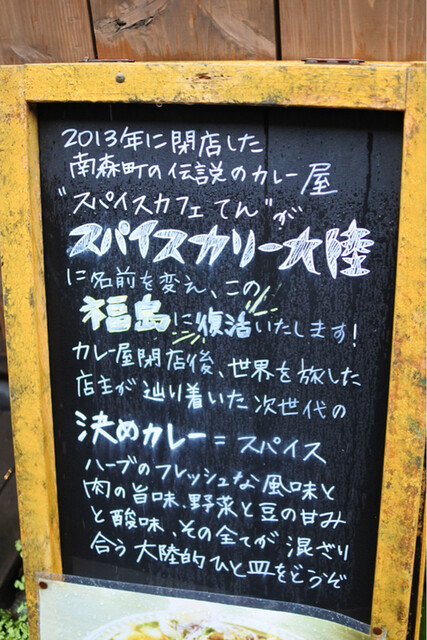 2013年に閉店した
南森町の伝説のカレー屋
"スパイスカフェてん"が
スパイスカリー大陸
に名前を変え、この
福島に復活いたします!
カレー屋閉店後、世界を旅した
店主が辿り着いた次世代の
決めカレー=スパイス
ハーブのフレッシュな風味と
肉の旨味、野菜と豆の甘み
と酸味、その全てが混ざり
合う大陸的ひと皿をどうぞ